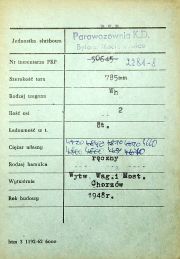 Jednostka służbowa Parowozownia K.D.
Nr inwentarza PKP 50645 2284-S
Szerokość toru 785mm
Rodzaj wagonu Wh
Ilość osi 2
Ładowność w t. 8t.
Ciężar własny
Rodzaj hamulca ręczny
Wytwórnia Wytw. Wag. i Most. Chorzów
Rok budowy 1948r.
bzm 3 1192-62 6000